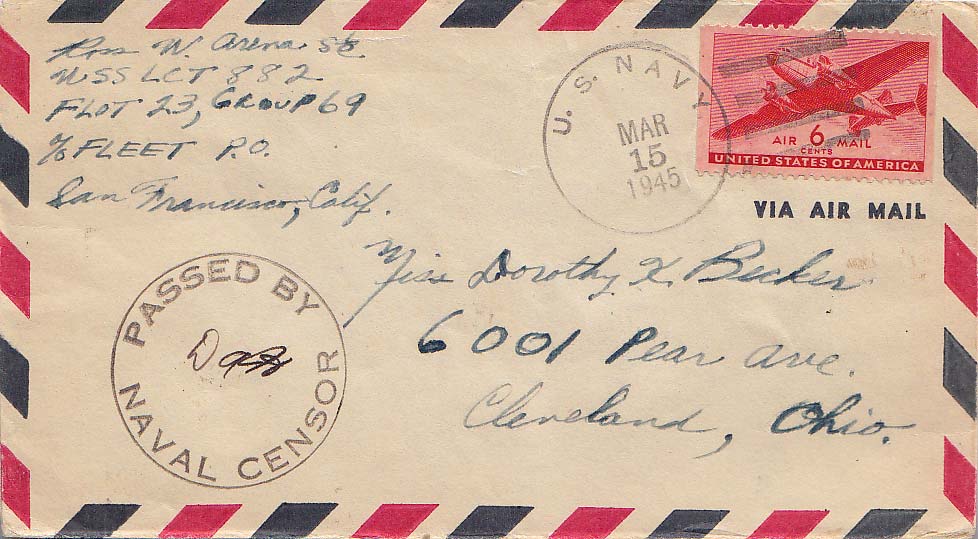 Ross W. Arena SC
USS LCT 882
FLOT 23, GROUP 69
℅ FLEET P.O.
San Francisco, Calif.
U.S. NAVY
MAR
15
1945
AIR 6 MAIL
CENTS
UNITED STATES OF AMERICA
VIA AIR MAIL
Miss Dorothy K. Becker
6001 Pear Ave.
Cleveland, Ohio.
PASSED BY
NAVAL CENSOR